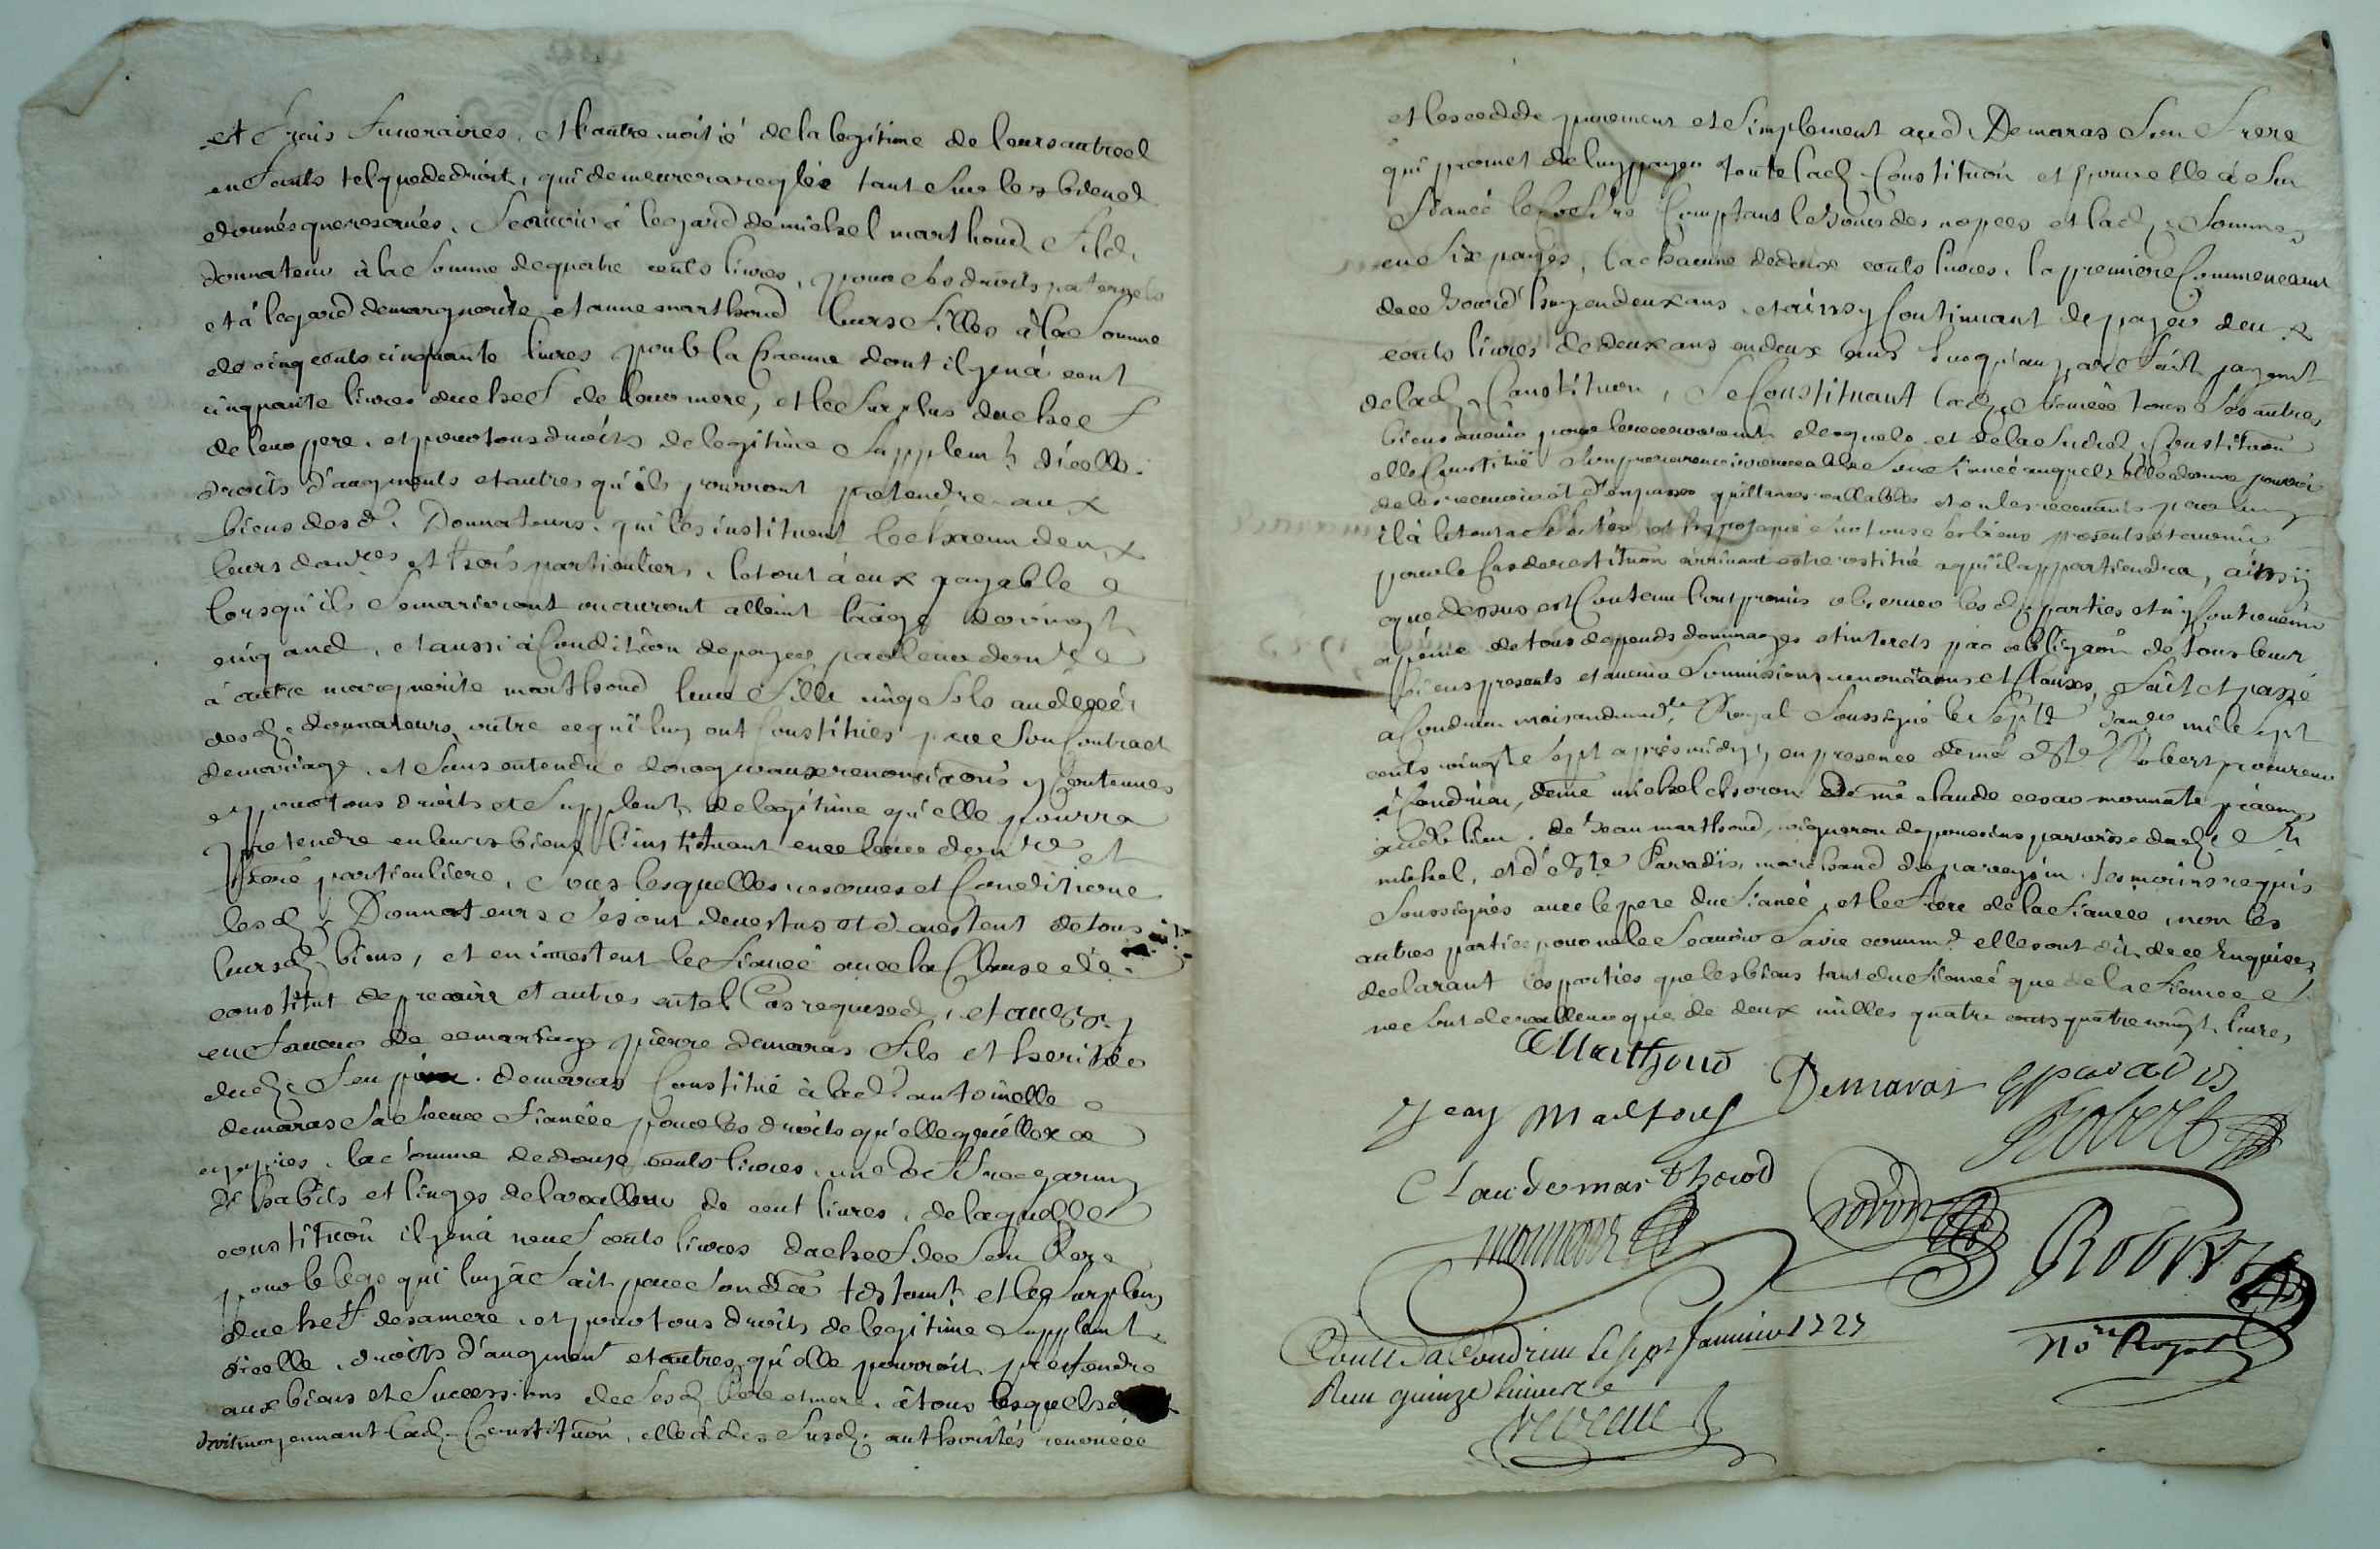 et frais funeraires, et l'autre moitié de la legitime de leurs autres
enfants tel que de droit, qui demeurera reglée tant sur les biens
donnés que reservés, Scavoir à l'egard de michel marthoud fils
donnateur à la somme de quatre cents livres, pour ses droits paternels
et à l'egard de marguerite et anne marthoud leurs filles à la somme
de cinq cents cinquante livres pour la chacune dont il y en a cent
cinquante livres du chef de leur mere, et le surplus du chef
de leur pere, et pour tous droits de legitime supplemt d'icelle
droits d'augments et autres qu'ils pourront pretendre aux
biens desd. Donnateurs, qui les instituent le chacun deux
leurs donres et heoirs particuliers, le tout à eux payable
lorsqu'ils se marieront ou auront atteint l'aage de vingt
cinq ans, et aussi à condition de payer par leur
à autre marguerite marthoud leur fille cinq sols au decés
desd. donnateurs, outre ce qu'ils luy ont constitués par son contract
de mariage, et sans entendre deroger aux renonciãons y contenues
et pour tous droits et supplemts de legitime qu'elle pourra
pretendre en leurs biens l'instituant en ce leur et
heore particuliere, sous lesquelles reserves et conditions
lesd. Donnateurs se sont devestus et devestent de tous
leursd. biens, et en investent le fiancé avec la clause de
constitut de precaire et autres en tel cas requises, et
en faveur de ce mariage pierre demaras fils et heritier
dud. feu demaras constitué à lad. antoinette
demaras sa soeur fiancée pour les droits qu'elle
la somme de douze cents livres, un coffre garny
d'habits et linges de la valleur de cent livres, de laquelle
constitution il y en a neuf cents livres du chef de son Pere
pour le legs qui luy a fait par son der testamt et le surplus
du chef de sa mere, et pour tous droits de legitime supplemt
d'icelle, droits d'augment et autres qu'elle pourroit pretendre
aux biens et successions de sesd. Pere et mere, à tous lesquels
droits moyennant lad. constitution, elle a des susd. authorités renoncée
et les cedde purement et simplement aud. Demaras son frere
qui promet de luy payer toute lad. constitution et pour elle à son
fiancé le coffre comptant le jour des nopces et lad. somme
en six payes, la chacune de deux cents livres, la premiere commenceant
de ce jourd'huy en deux ans, et ainsy continuant de payer deux
cents livres de deux ans en deux ans jusqu'au parfait payemt
de lad. constitution, se constituant lad. fiancée tous ses autres
biens avenir pour le recouvrement desquels et de la susd. constitution
elle constitué son procureur irrevocable son fiancé auquel elle donne pouvoir
de les recevoir et d'en passer quittances vallables et en les recevants par luy
il à le tout et hypotequé sur tous ses biens presents et avenir
pour le cas de restitution arrivant estre restitué a qui il appartiendra, ainsy
que dessus est contenu l'ont promis observer lesd. parties et n'y contrevenir
a peine de tous depends dommages et interets par obligãon de tous leurs
biens presents et avenir soumissions renonciaons et clauses, fait et passé
a Condrieu maison du nore Royal soussigné le Sept janvier mile sept
cents vingte sept après midy, en presence de me Robert procureur
à Condrieu, de me michel choron de me claude cesar monnate
aud. lieu, de Jean marthoud, vigneron de paroisse dud. St
michel, et d'Este Paradis, marchand de temoins requis
soussignés avec le pere du fiancé, et le frere de la fiancée, non les
autres parties pour ne le scavoir faire comme elles ont dit de ce enquises,
declarant les parties que les biens tant du fiancé que de la fiancée
ne sont de valleur que de deux milles quatre cents quatre vingt livres
Marthoud
Jean Martoud Demaras Eparadis
Robert
Claude marthoud
monnate
Robert
Nore Royal
Contlé à Condrieu le sept Janvier 1727
Receu quinze livres